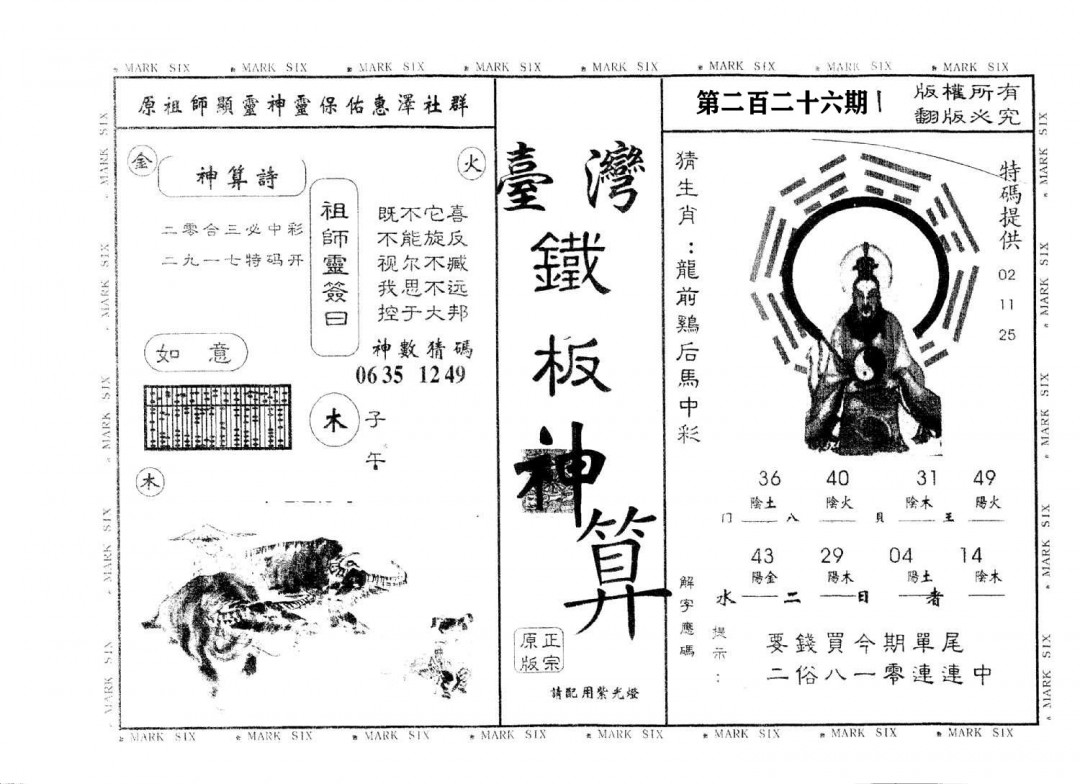 MARK SIX MARK SIX MARK SIX MARK SIX MARK SIX MARK SIX MARK SIX MARK SIX
原祖師顯靈神靈保佑惠澤社群
金
火
神算詩
二零合三必中彩
二九一七特码开
祖師靈簽曰
既不它喜
不能旋反
视尔不臧
我思不远
控于大邦
神數猜碼
06 35 12 49
如意
木
子
午
木
臺灣
鐵
板
神
算
正宗
原版
請配用紫光燈
第二百二十六期
版權所有
翻版必究
猜生肖：龍前鷄后馬中彩
特碼提供
02
11
25
36 40 31 49
陰土 陰火 陰木 陽火
门 八 貝 王
43 29 04 14
陽金 陽木 陽土 陰木
水 二 日 者
解字應碼
提示：
要錢買今期單尾
二俗八一零連連中
MARK SIX MARK SIX MARK SIX MARK SIX MARK SIX MARK SIX MARK SIX MARK SIX
MARK SIX MARK SIX MARK SIX MARK SIX MARK SIX
MARK SIX MARK SIX MARK SIX MARK SIX MARK SIX